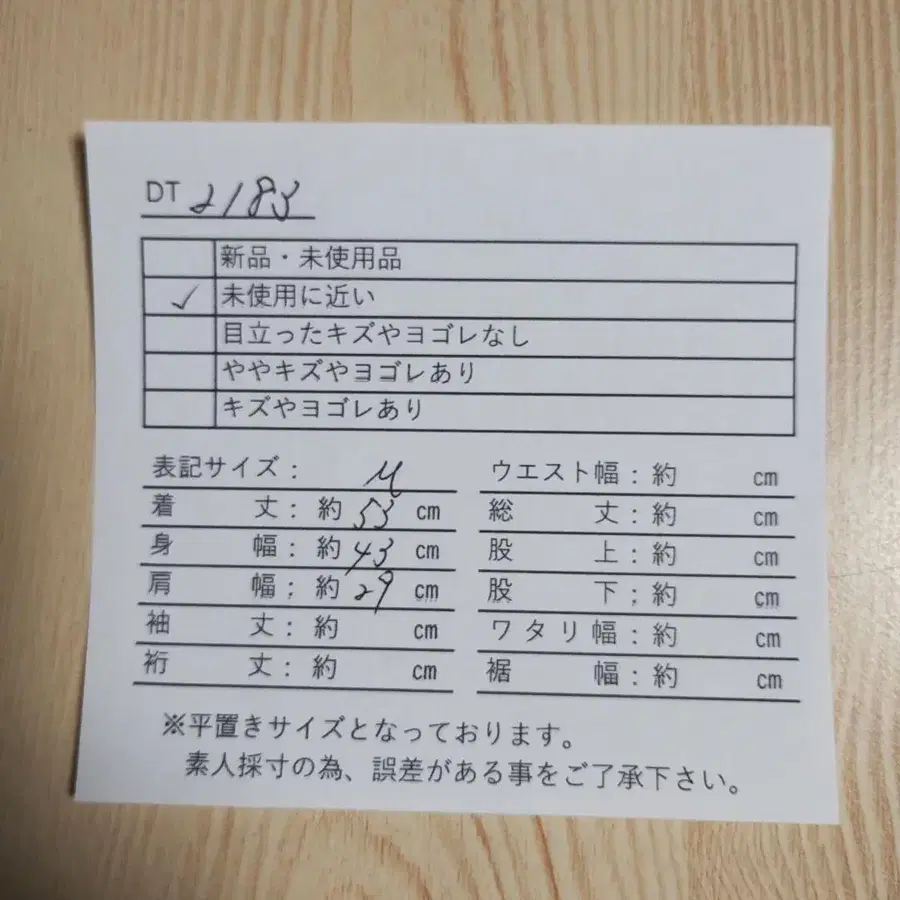 DT 2183
新品・未使用品
✓ 未使用に近い
目立ったキズやヨゴレなし
ややキズやヨゴレあり
キズやヨゴレあり
表記サイズ: M
着 丈: 約 53 cm
身 幅: 約 43 cm
肩 幅: 約 29 cm
袖 丈: 約 cm
裄 丈: 約 cm
ウエスト幅: 約 cm
総 丈: 約 cm
股 上: 約 cm
股 下: 約 cm
ワタリ幅: 約 cm
裾 幅: 約 cm
※平置きサイズとなっております。
素人採寸の為、誤差がある事をご了承下さい。